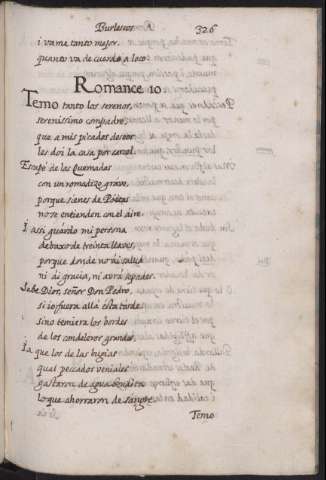 Burlescos
326
i vame tanto mejor.
quanto va de cuerdo a loco.
Romance 10
Temo tanto los serenos,
serenissimo compadre,
que a mis picados
les doi la casa por carcel.
Escapé de las Quemadas
con un romadizo grave,
porque sienes de Poetas
no se entienden con el aire.
I assi guardo mi persona
debaxo de treinta llaves,
porque donde no ai salud
ni ai gracia, ni avrá
Sabe Dios, señor Don Pedro,
si io fuera allá esta tarde
sino temiera los bordes
de los candeleros grandes.
Ia que los de las higias
qual peccados veniales
gastaron de agua bendita
lo que ahorraron de sangre.
Temo